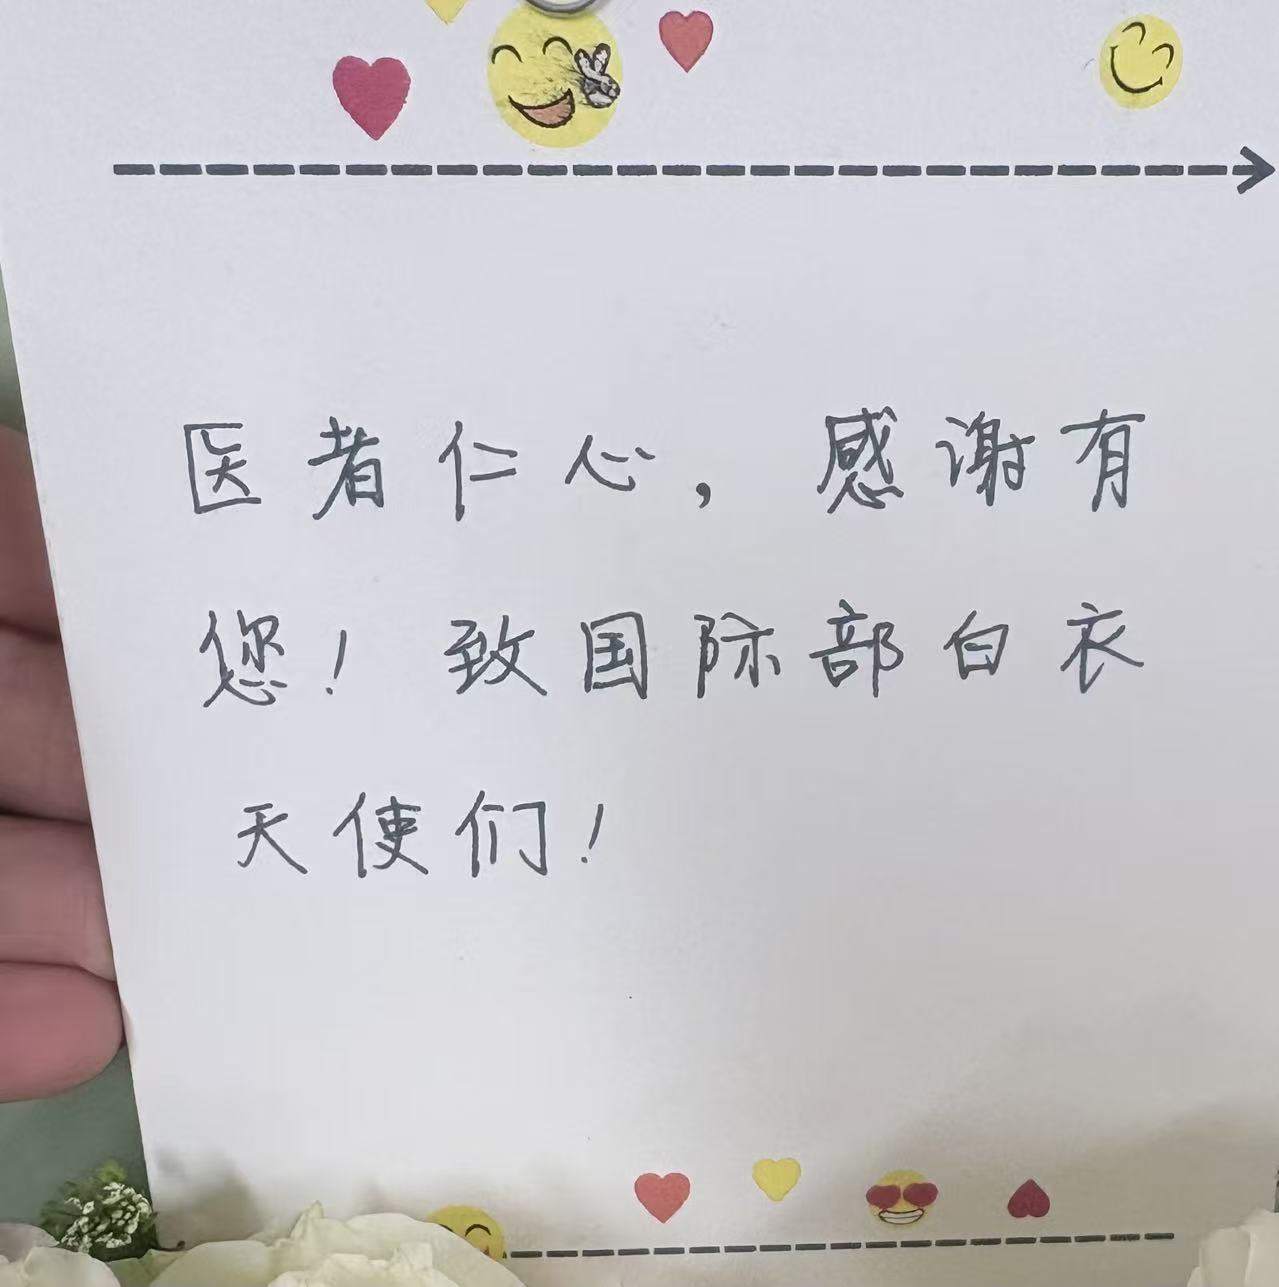 医者仁心，感谢有
您！致国际部白衣
天使们！